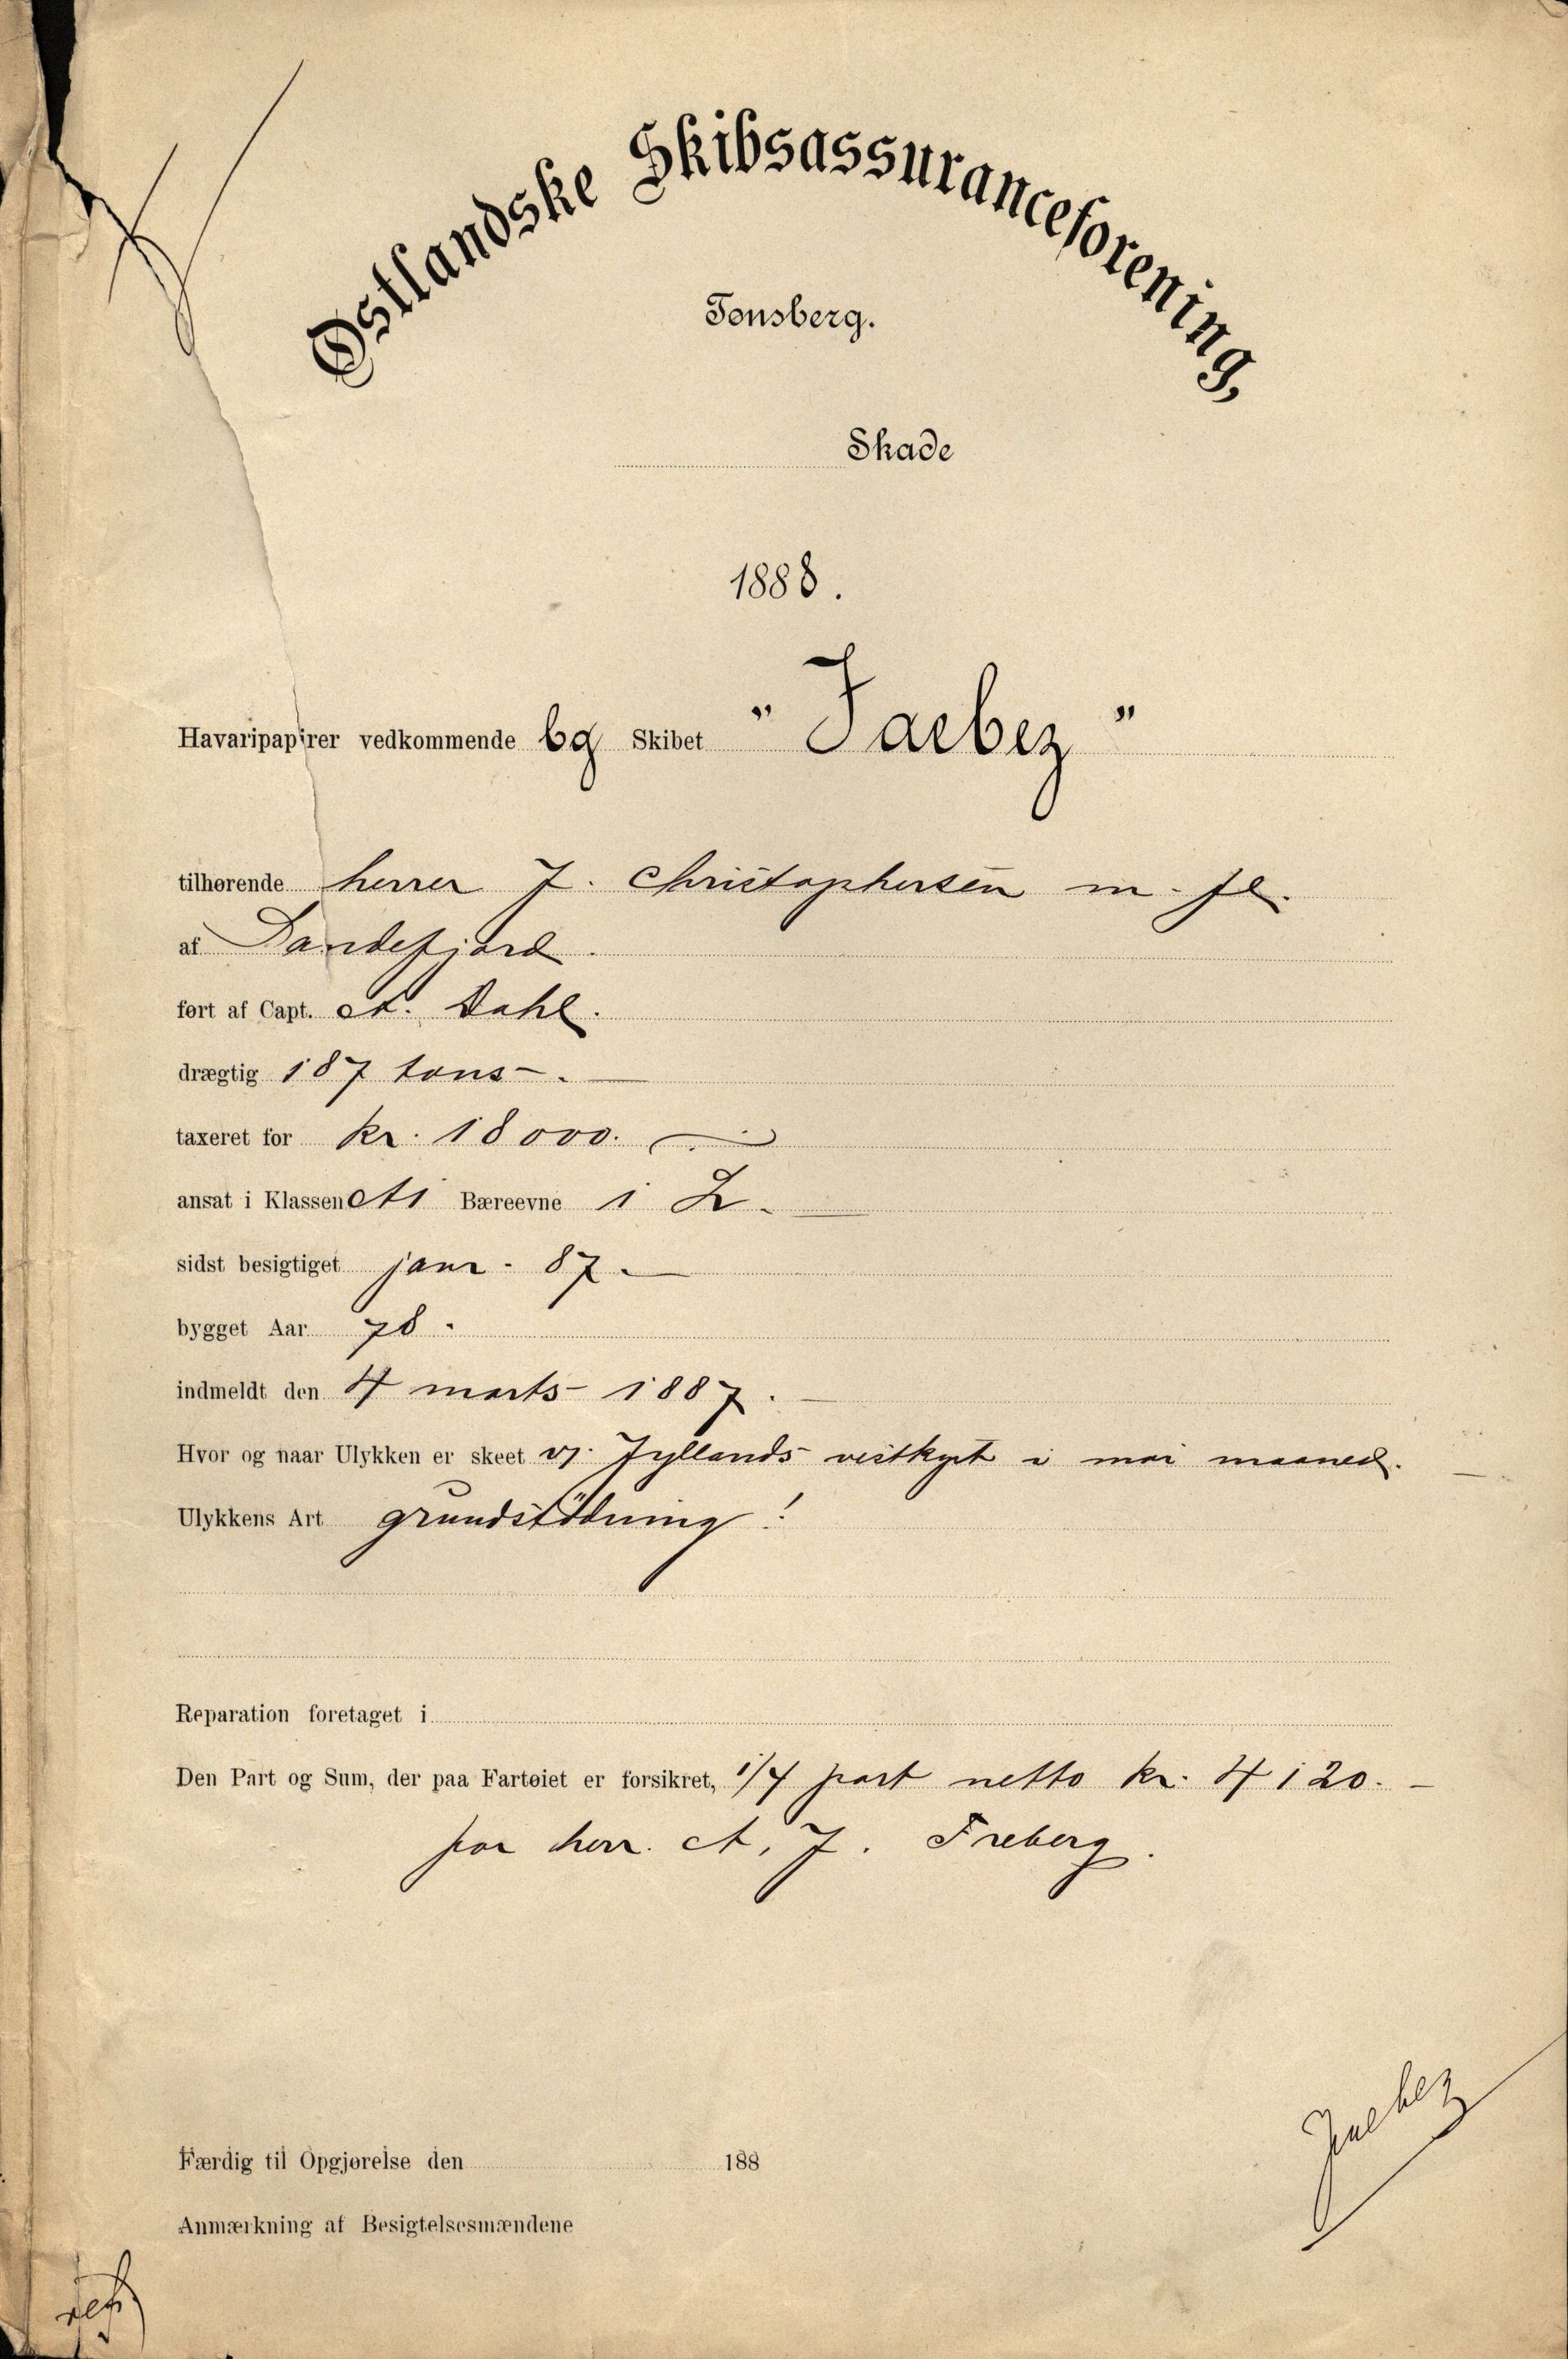 Østlandske Skibsassuranceforening,
Tønsberg.
Skade
1888.
Havaripapirer vedkommende bg Skibet "Jaebez"
tilhørende herrer J. Christophersen m. fl.
af Sandefjord.
ført af Capt. A. Dahl.
drægtig 187 tons.
taxeret for kr. 18000.
ansat i Klassen A1 Bæreevne 1 Z.
sidst besigtiget janr. 87.
bygget Aar 78.
indmeldt den 4 marts 1887.
Hvor og naar Ulykken er skeet v. Jyllands vestkyst i mai maaned.
Ulykkens Art grundstödning!
Reparation foretaget i
Den Part og Sum, der paa Fartøiet er forsikret, 1/4 part netto kr. 4120.-
for herr. A. J. Freberg.
Færdig til Opgjørelse den 188
Anmærkning af Besigtelsesmændene
Jaebez